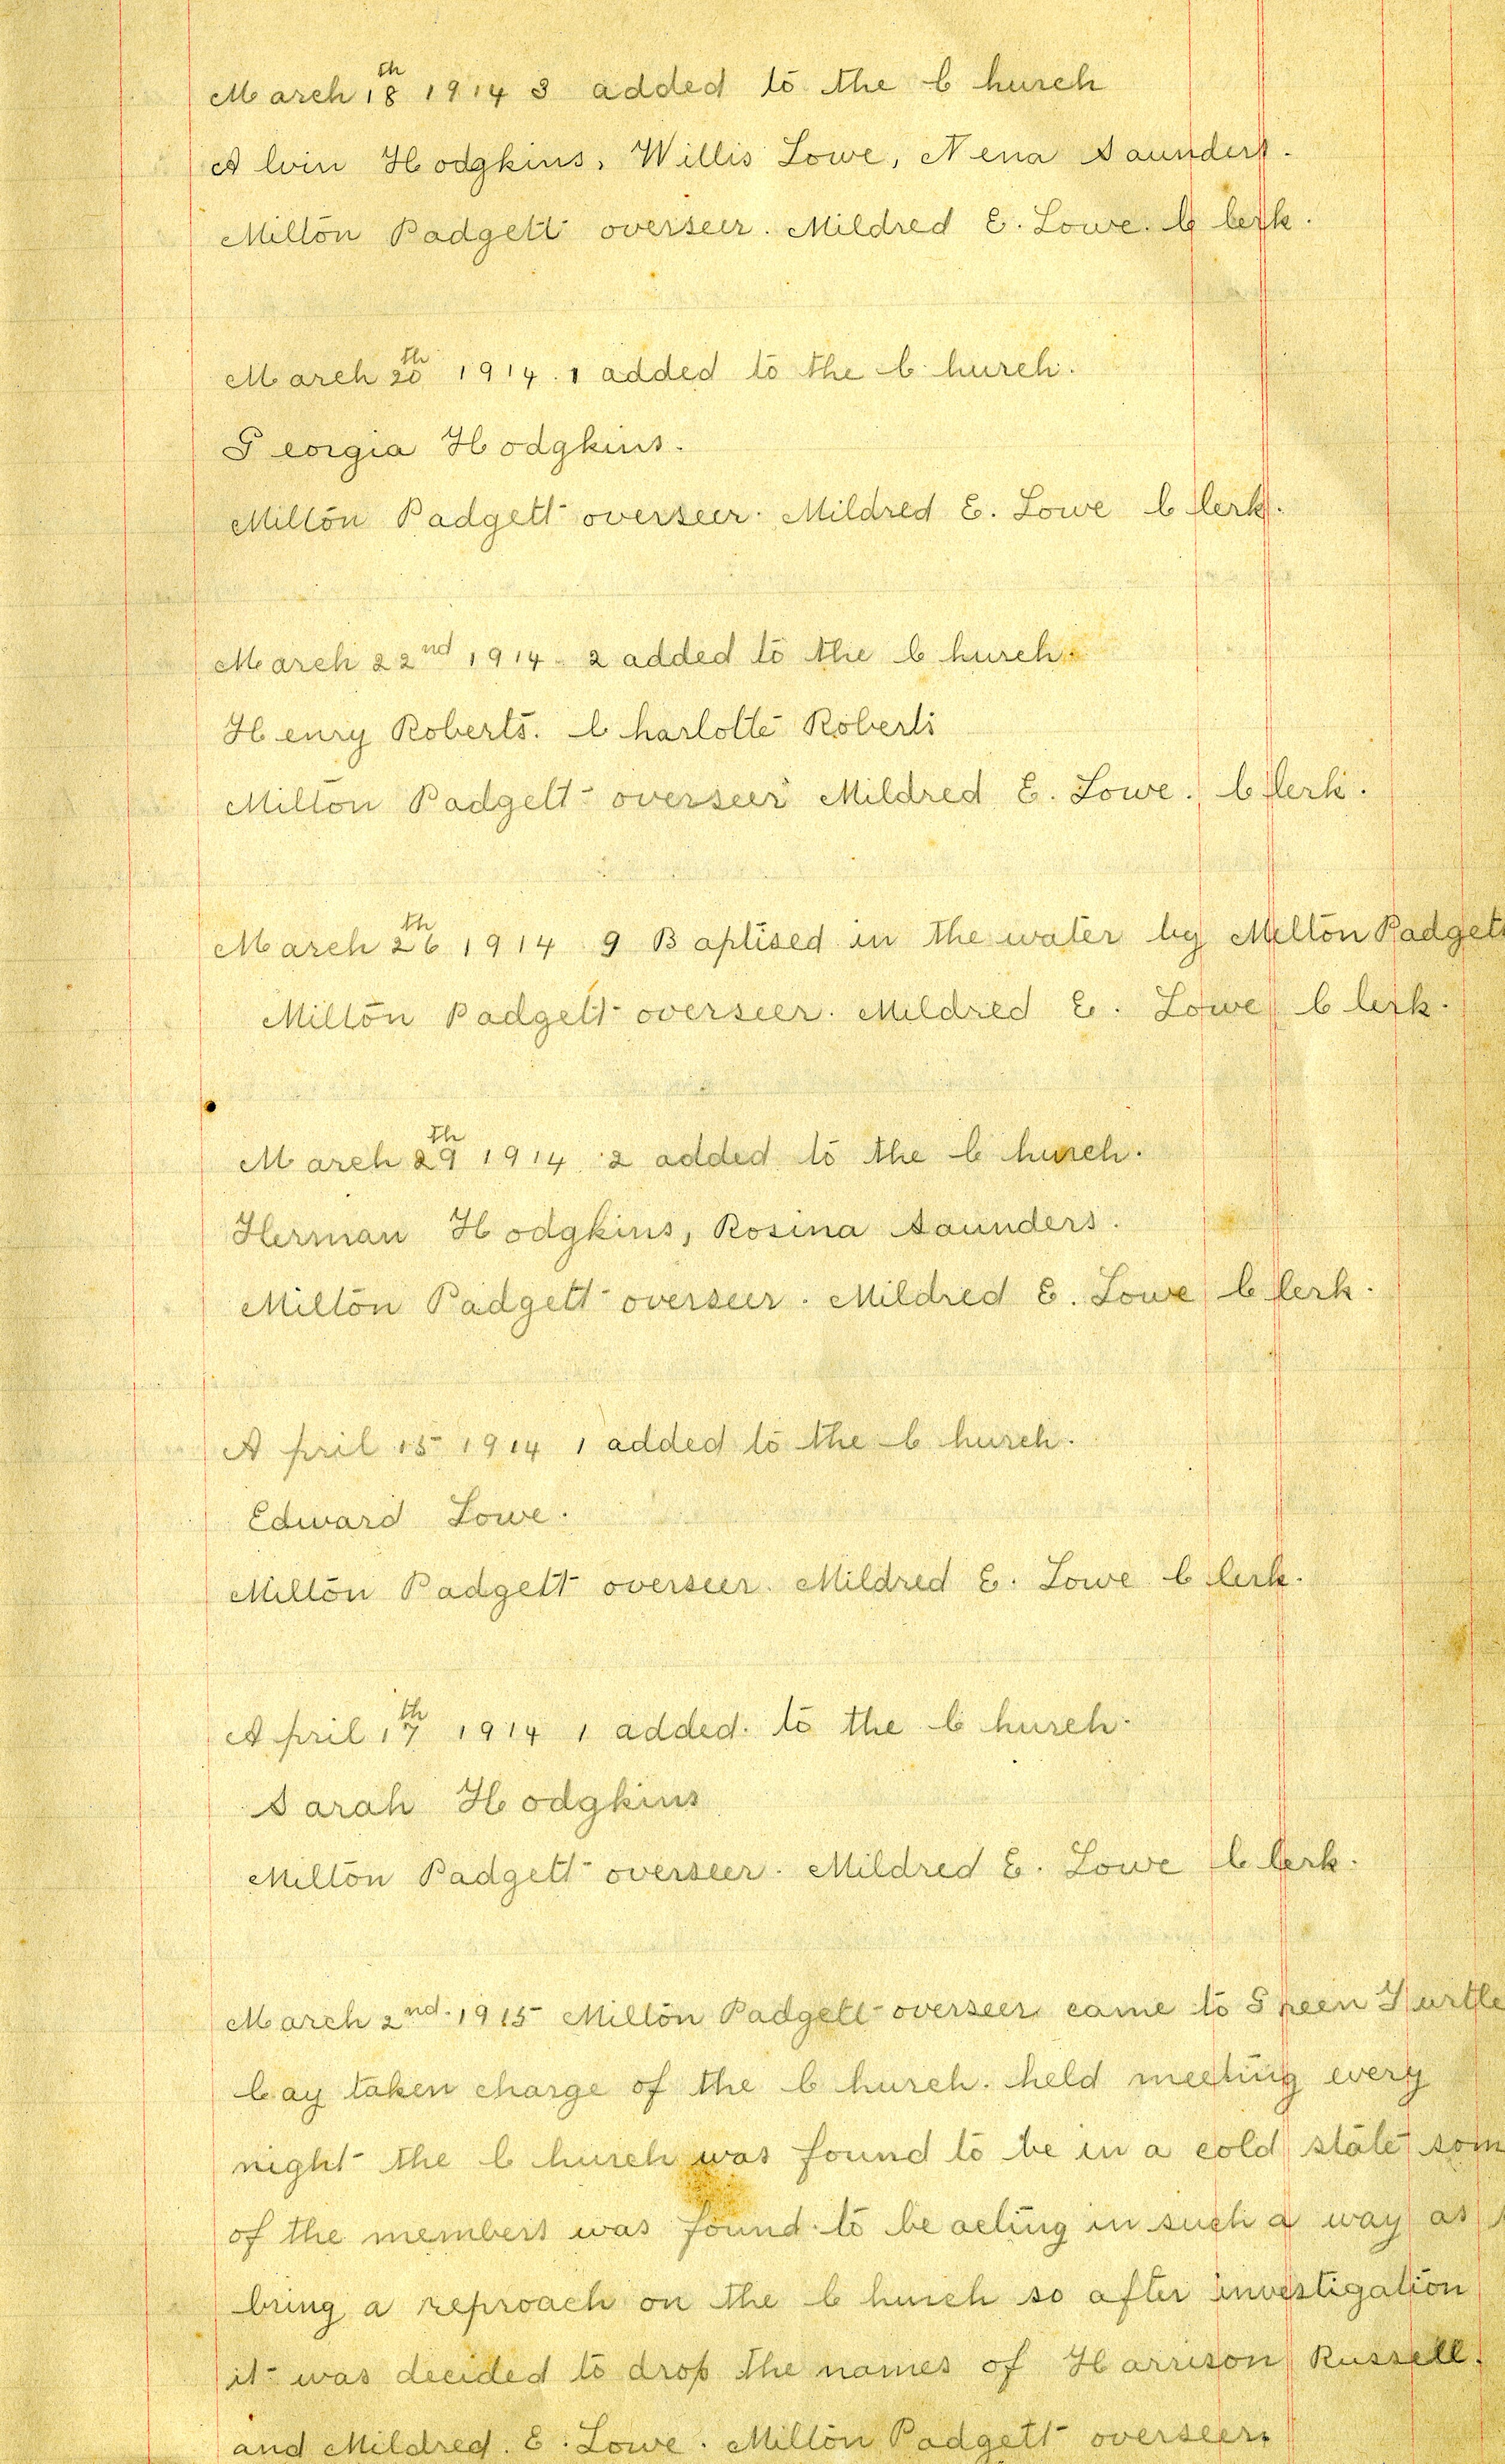 March 18th 1914 3 added to the Church
Alvin Hodgkins, Willis Lowe, Nena Saunders.
Milton Padgett overseer. Mildred E. Lowe. Clerk.
March 20th 1914. 1 added to the Church.
Georgia Hodgkins.
Milton Padgett overseer. Mildred E. Lowe Clerk.
March 22nd 1914. 2 added to the Church.
Henry Roberts. Charlotte Roberts
Milton Padgett overseer Mildred E. Lowe. Clerk.
March 26th 1914 9 Baptised in the water by Milton Padgett
Milton Padgett overseer. Mildred E. Lowe Clerk.
March 29th 1914 2 added to the Church.
Herman Hodgkins, Rosina Saunders.
Milton Padgett overseer. Mildred E. Lowe Clerk.
April 15 1914 1 added to the Church.
Edward Lowe.
Milton Padgett overseer. Mildred E. Lowe Clerk.
April 17th 1914 1 added. to the Church.
Sarah Hodgkins
Milton Padgett overseer. Mildred E. Lowe Clerk.
March 2nd. 1915 Milton Padgett overseer came to Green Turtle
Cay taken charge of the Church. held meeting every
night the Church was found to be in a cold state som
of the members was found to be acting in such a way as
bring a reproach on the Church so after investigation
it was decided to drop the names of Harrison Russell.
and Mildred. E. Lowe. Milton Padgett overseer.